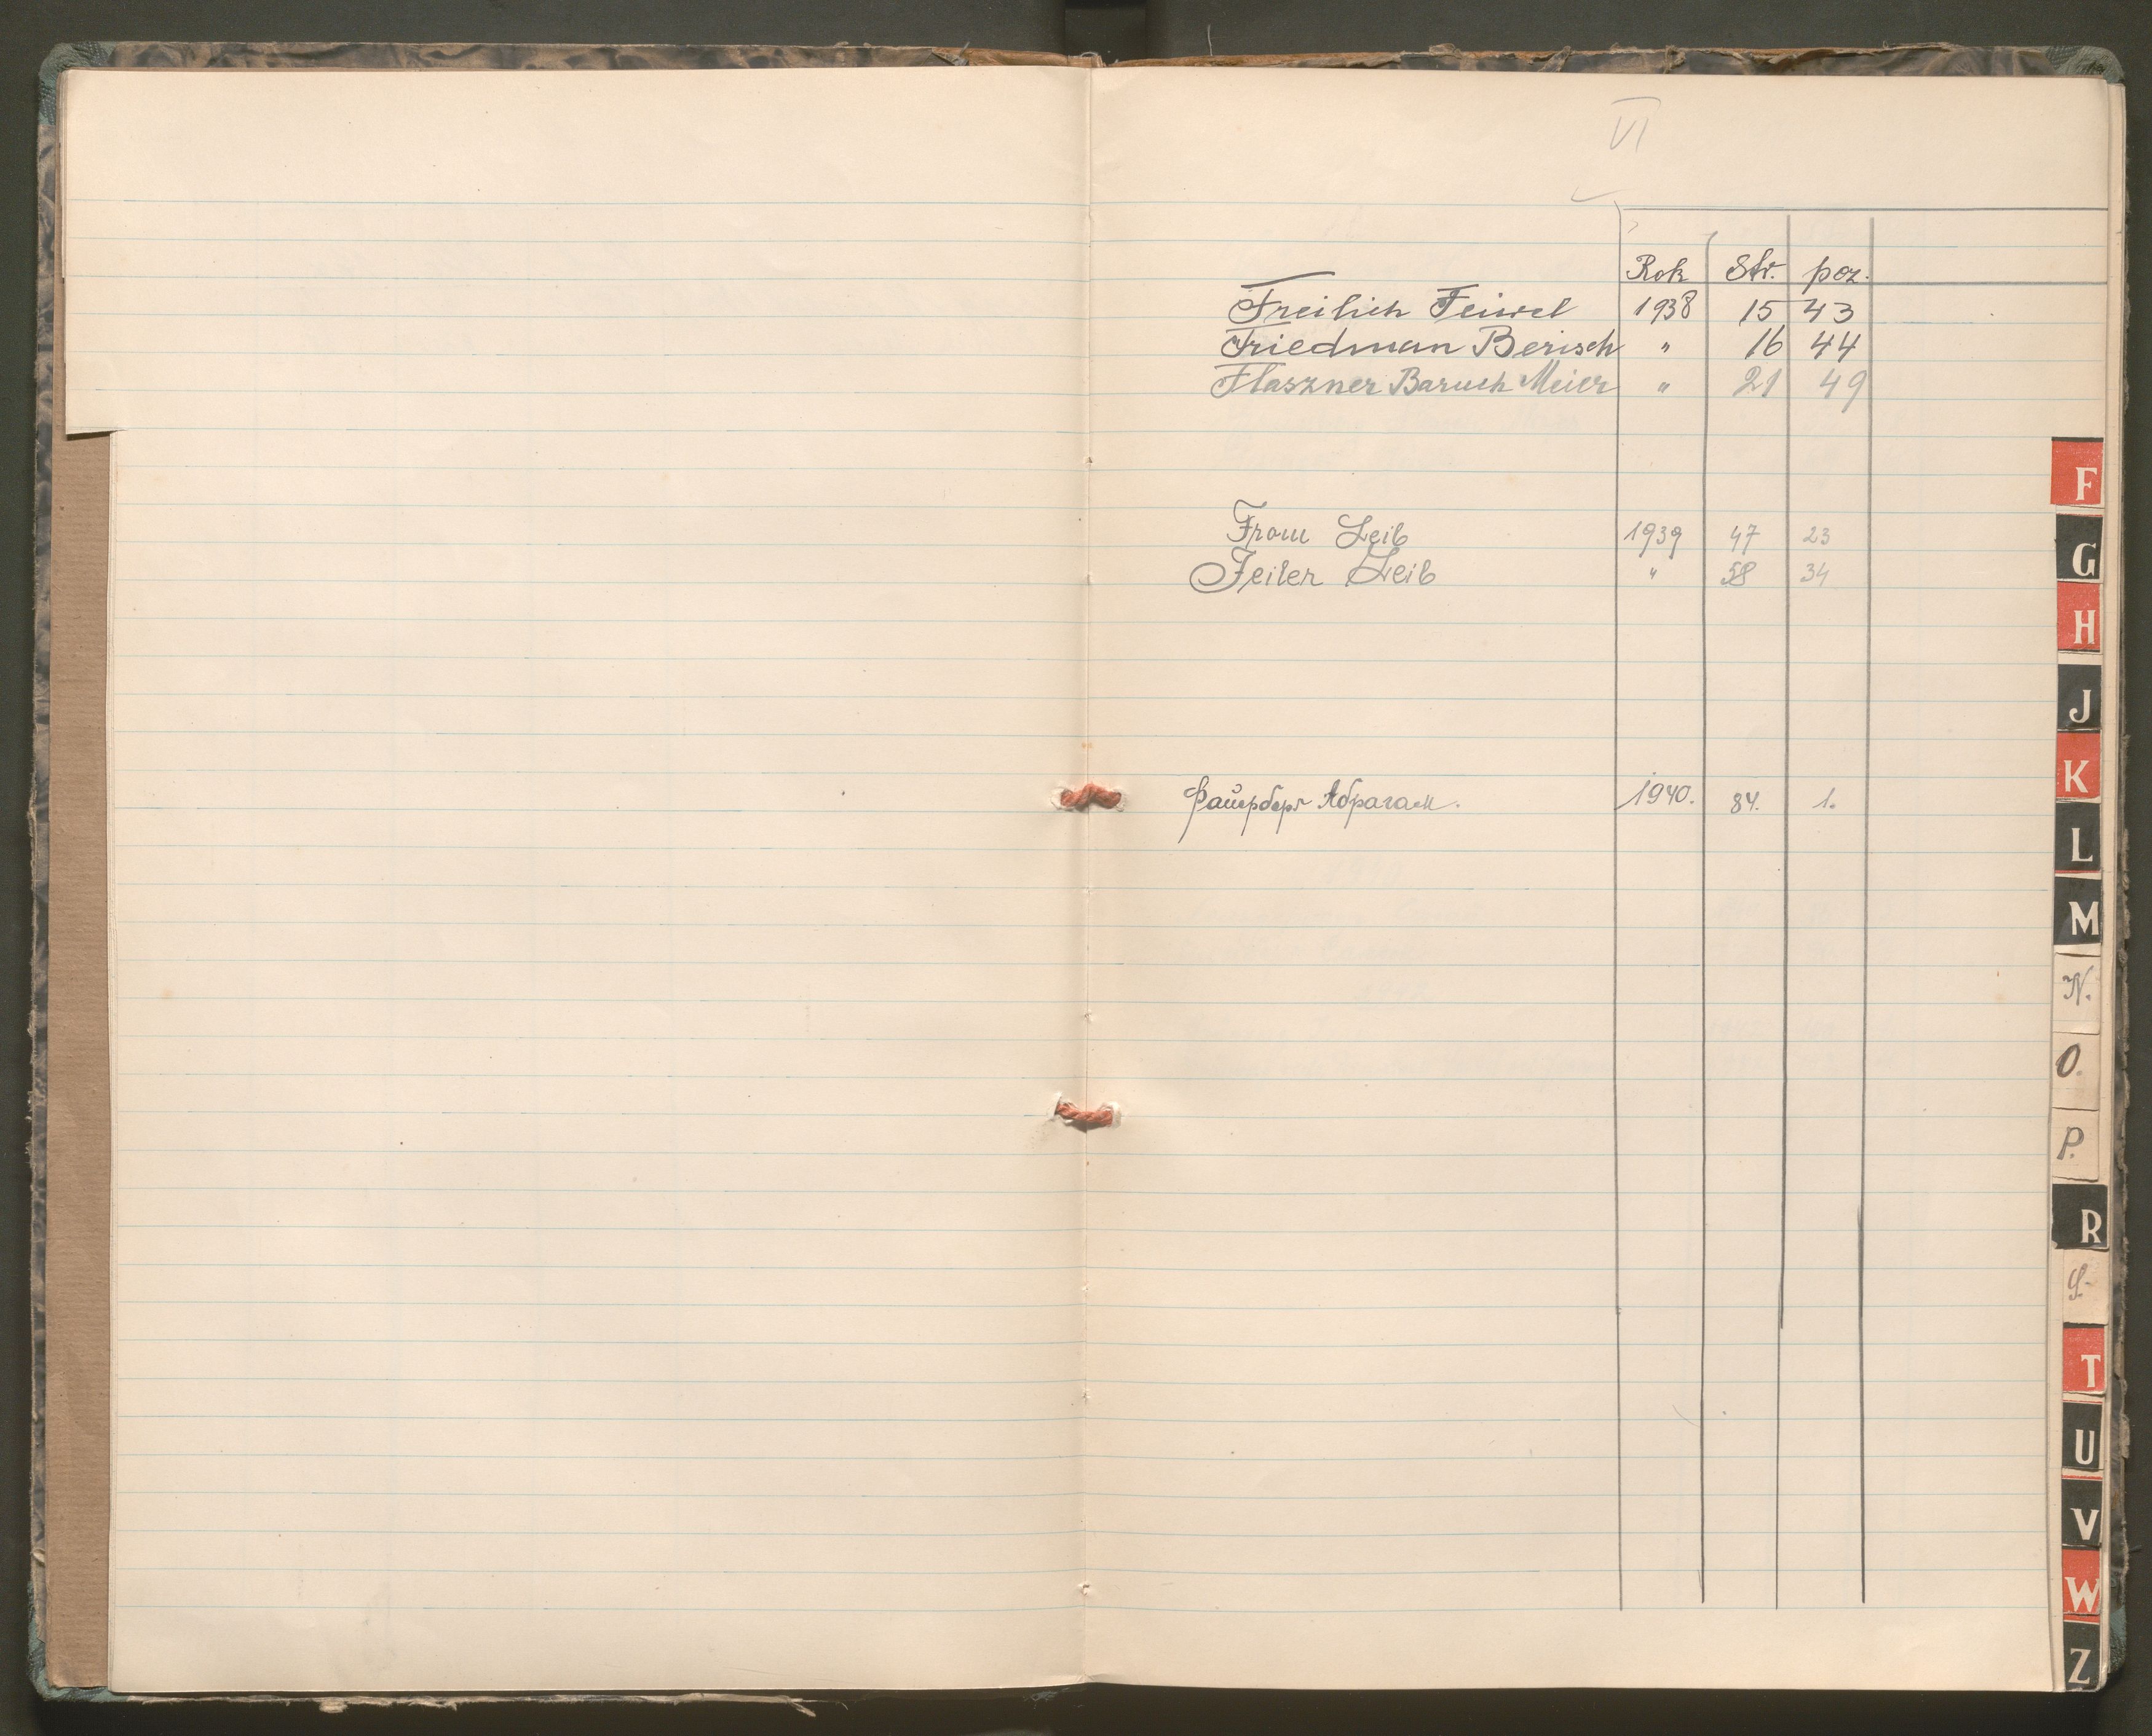 VI
Rok Str. poz.
Freilich Feiwel 1938 15 43
Friedman Berisch " 16 44
Flaszner Baruch Meier " 21 49
From Leib 1939 47 23
Feiler Leib " 58 34
Файерберг Абрагам. 1940. 84. 1.
F
G
H
J
K
L
M
N.
O.
P.
R
S.
T
U
V
W
Z